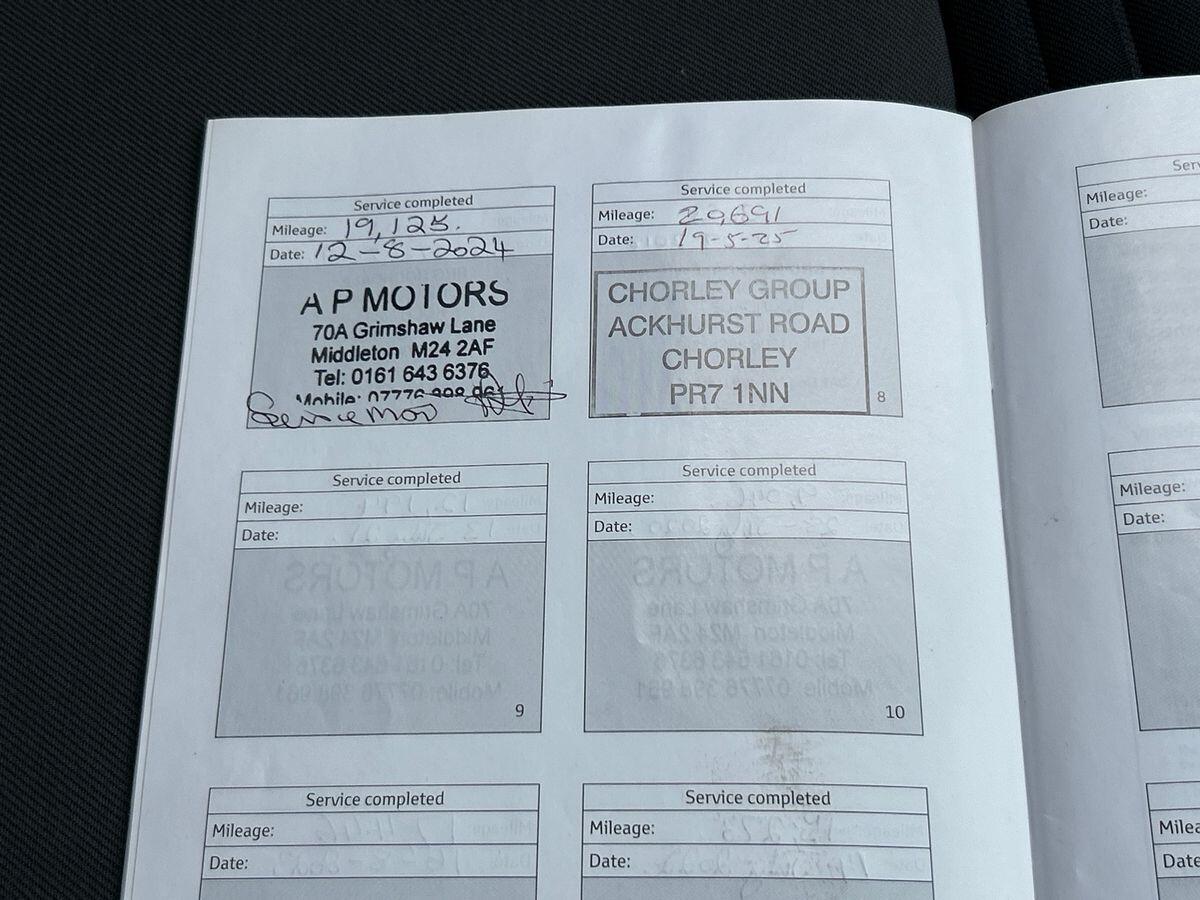 Service completed
Mileage: 19,125.
Date: 12-8-2024
A P MOTORS
70A Grimshaw Lane
Middleton M24 2AF
Tel: 0161 643 6376
Mobile: 07776
Service completed
Mileage: 29,691
Date: 19-5-25
CHORLEY GROUP
ACKHURST ROAD
CHORLEY
PR7 1NN
8
Service completed
Mileage:
Date:
9
Service completed
Mileage:
Date:
10
Service completed
Mileage:
Date:
Service completed
Mileage:
Date:
Mileage:
Date:
Mileage:
Date: